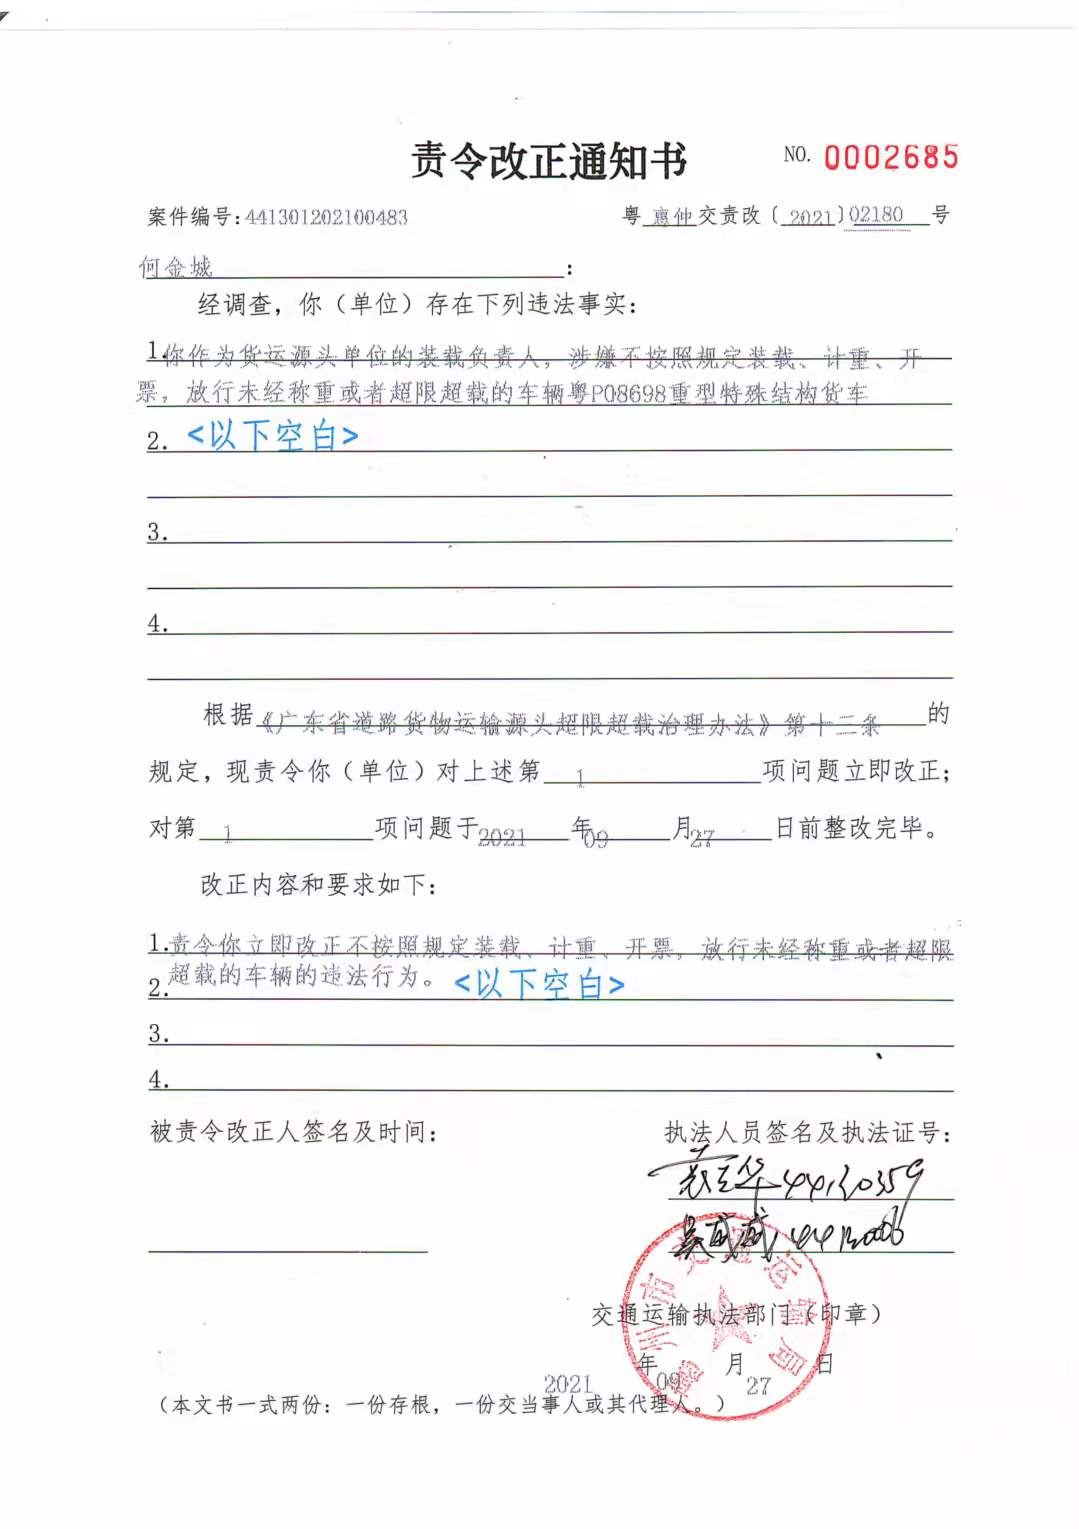 责令改正通知书 NO. 0002685
案件编号:441301202100483 粤 惠仲 交责改〔2021〕02180 号
何金城:
经调查，你（单位）存在下列违法事实：
1.你作为货运源头单位的装载负责人，涉嫌不按照规定装载、计重、开
票，放行未经称重或者超限超载的车辆粤P08698重型特殊结构货车
2. <以下空白>
3.
4.
根据《广东省道路货物运输源头超限超载治理办法》第十二条的
规定，现责令你（单位）对上述第 1 项问题立即改正；
对第 1 项问题于2021年09月27日前整改完毕。
改正内容和要求如下：
1.责令你立即改正不按照规定装载、计重、开票，放行未经称重或者超限
2.超载的车辆的违法行为。<以下空白>
3.
4.
被责令改正人签名及时间： 执法人员签名及执法证号：
交通运输执法部门（印章）
惠州市交通运输局
2021年09月27日
（本文书一式两份：一份存根，一份交当事人或其代理人。）